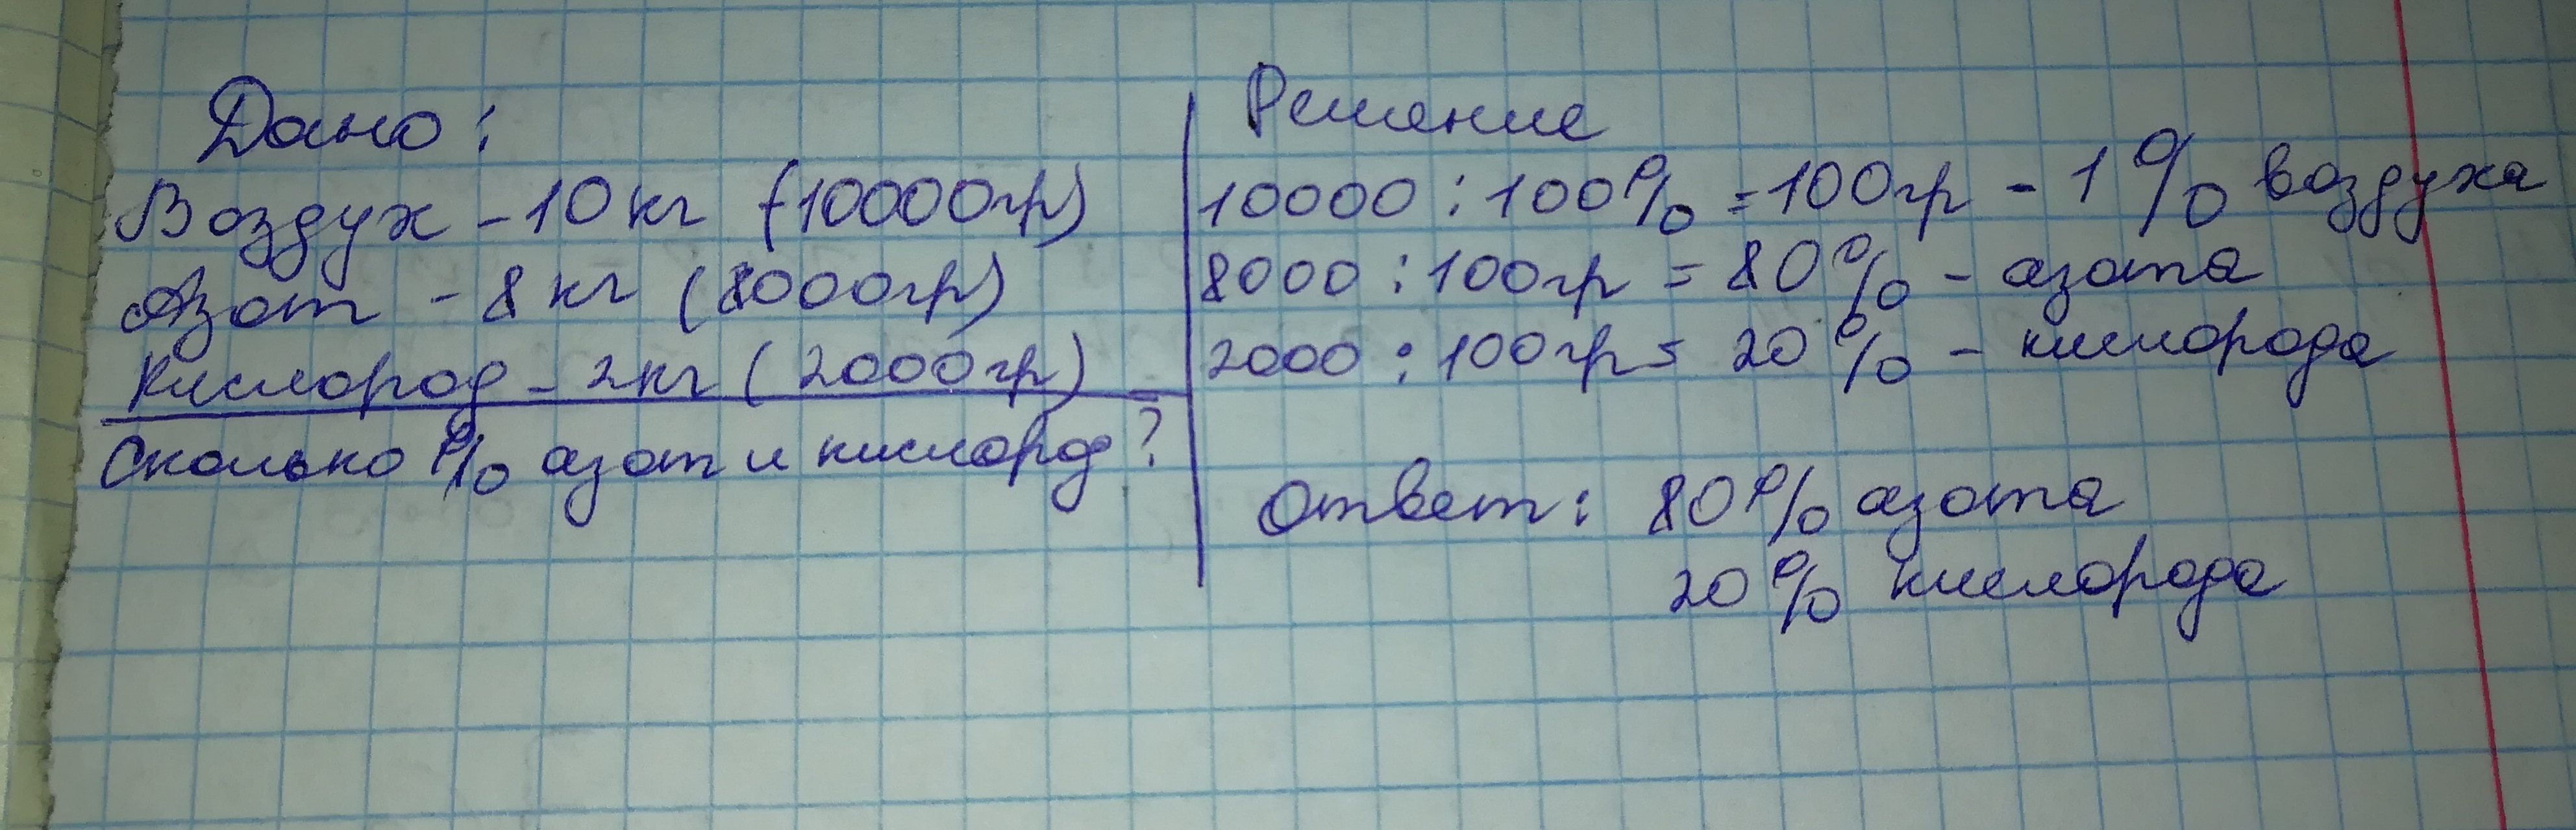 Дано:
Воздух - 10 кг (10000гр)
Азот - 8 кг (8000гр)
Кислород - 2кг (2000гр)
Сколько % азот и кислород?
Решение
10000 : 100% = 100гр - 1% воздуха
8000 : 100гр = 80% - азота
2000 : 100гр = 20% - кислорода
Ответ: 80% азота
20% кислорода